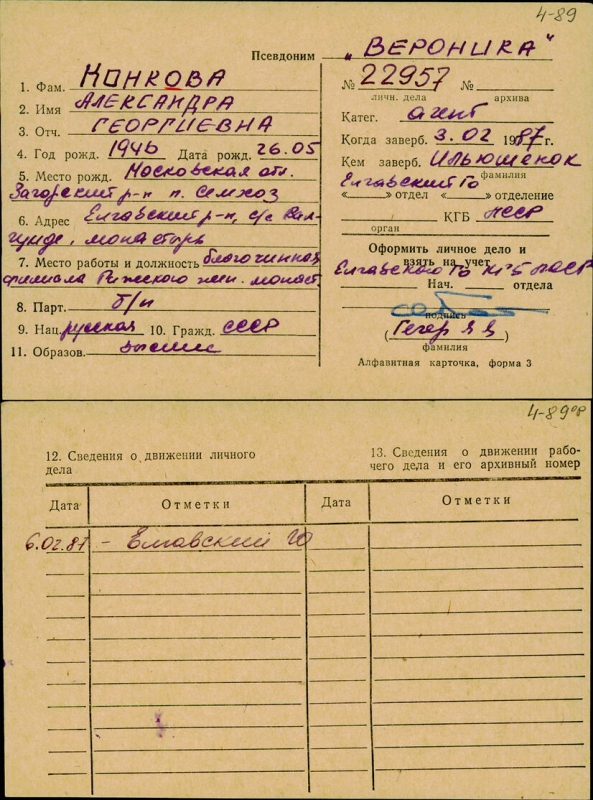 4-89
Псевдоним „ВЕРОНИКА"
1. Фам. КОНКОВА
2. Имя АЛЕКСАНДРА
3. Отч. ГЕОРГИЕВНА
4. Год рожд. 1946 Дата рожд. 26.05
5. Место рожд. Московская обл.
Загорский р-н п. Семхоз
6. Адрес Елгавский р-н, с/с Вал-
гунде, монастырь
7. Место работы и должность благочинная
филиала Рижского жен. монаст.
8. Парт. б/п
9. Нац. русская 10. Гражд. СССР
11. Образов. высшее
№ 22957 №
личн. дела архива
Катег. агент
Когда заверб. 3.02 1987 г.
Кем заверб. Ильюшенок
фамилия
Елгавский ГО
«     » отдел «     » отделение
КГБ ЛССР
орган
Оформить личное дело и
взять на учет
Елгавского ГО КГБ ЛССР
Нач. отдела
подпись
(Гегер Я Я)
фамилия
Алфавитная карточка, форма 3
4-89об
12. Сведения о движении личного
дела
13. Сведения о движении рабо-
чего дела и его архивный номер
Дата Отметки Дата Отметки
6.02.87 - Елгавский ГО